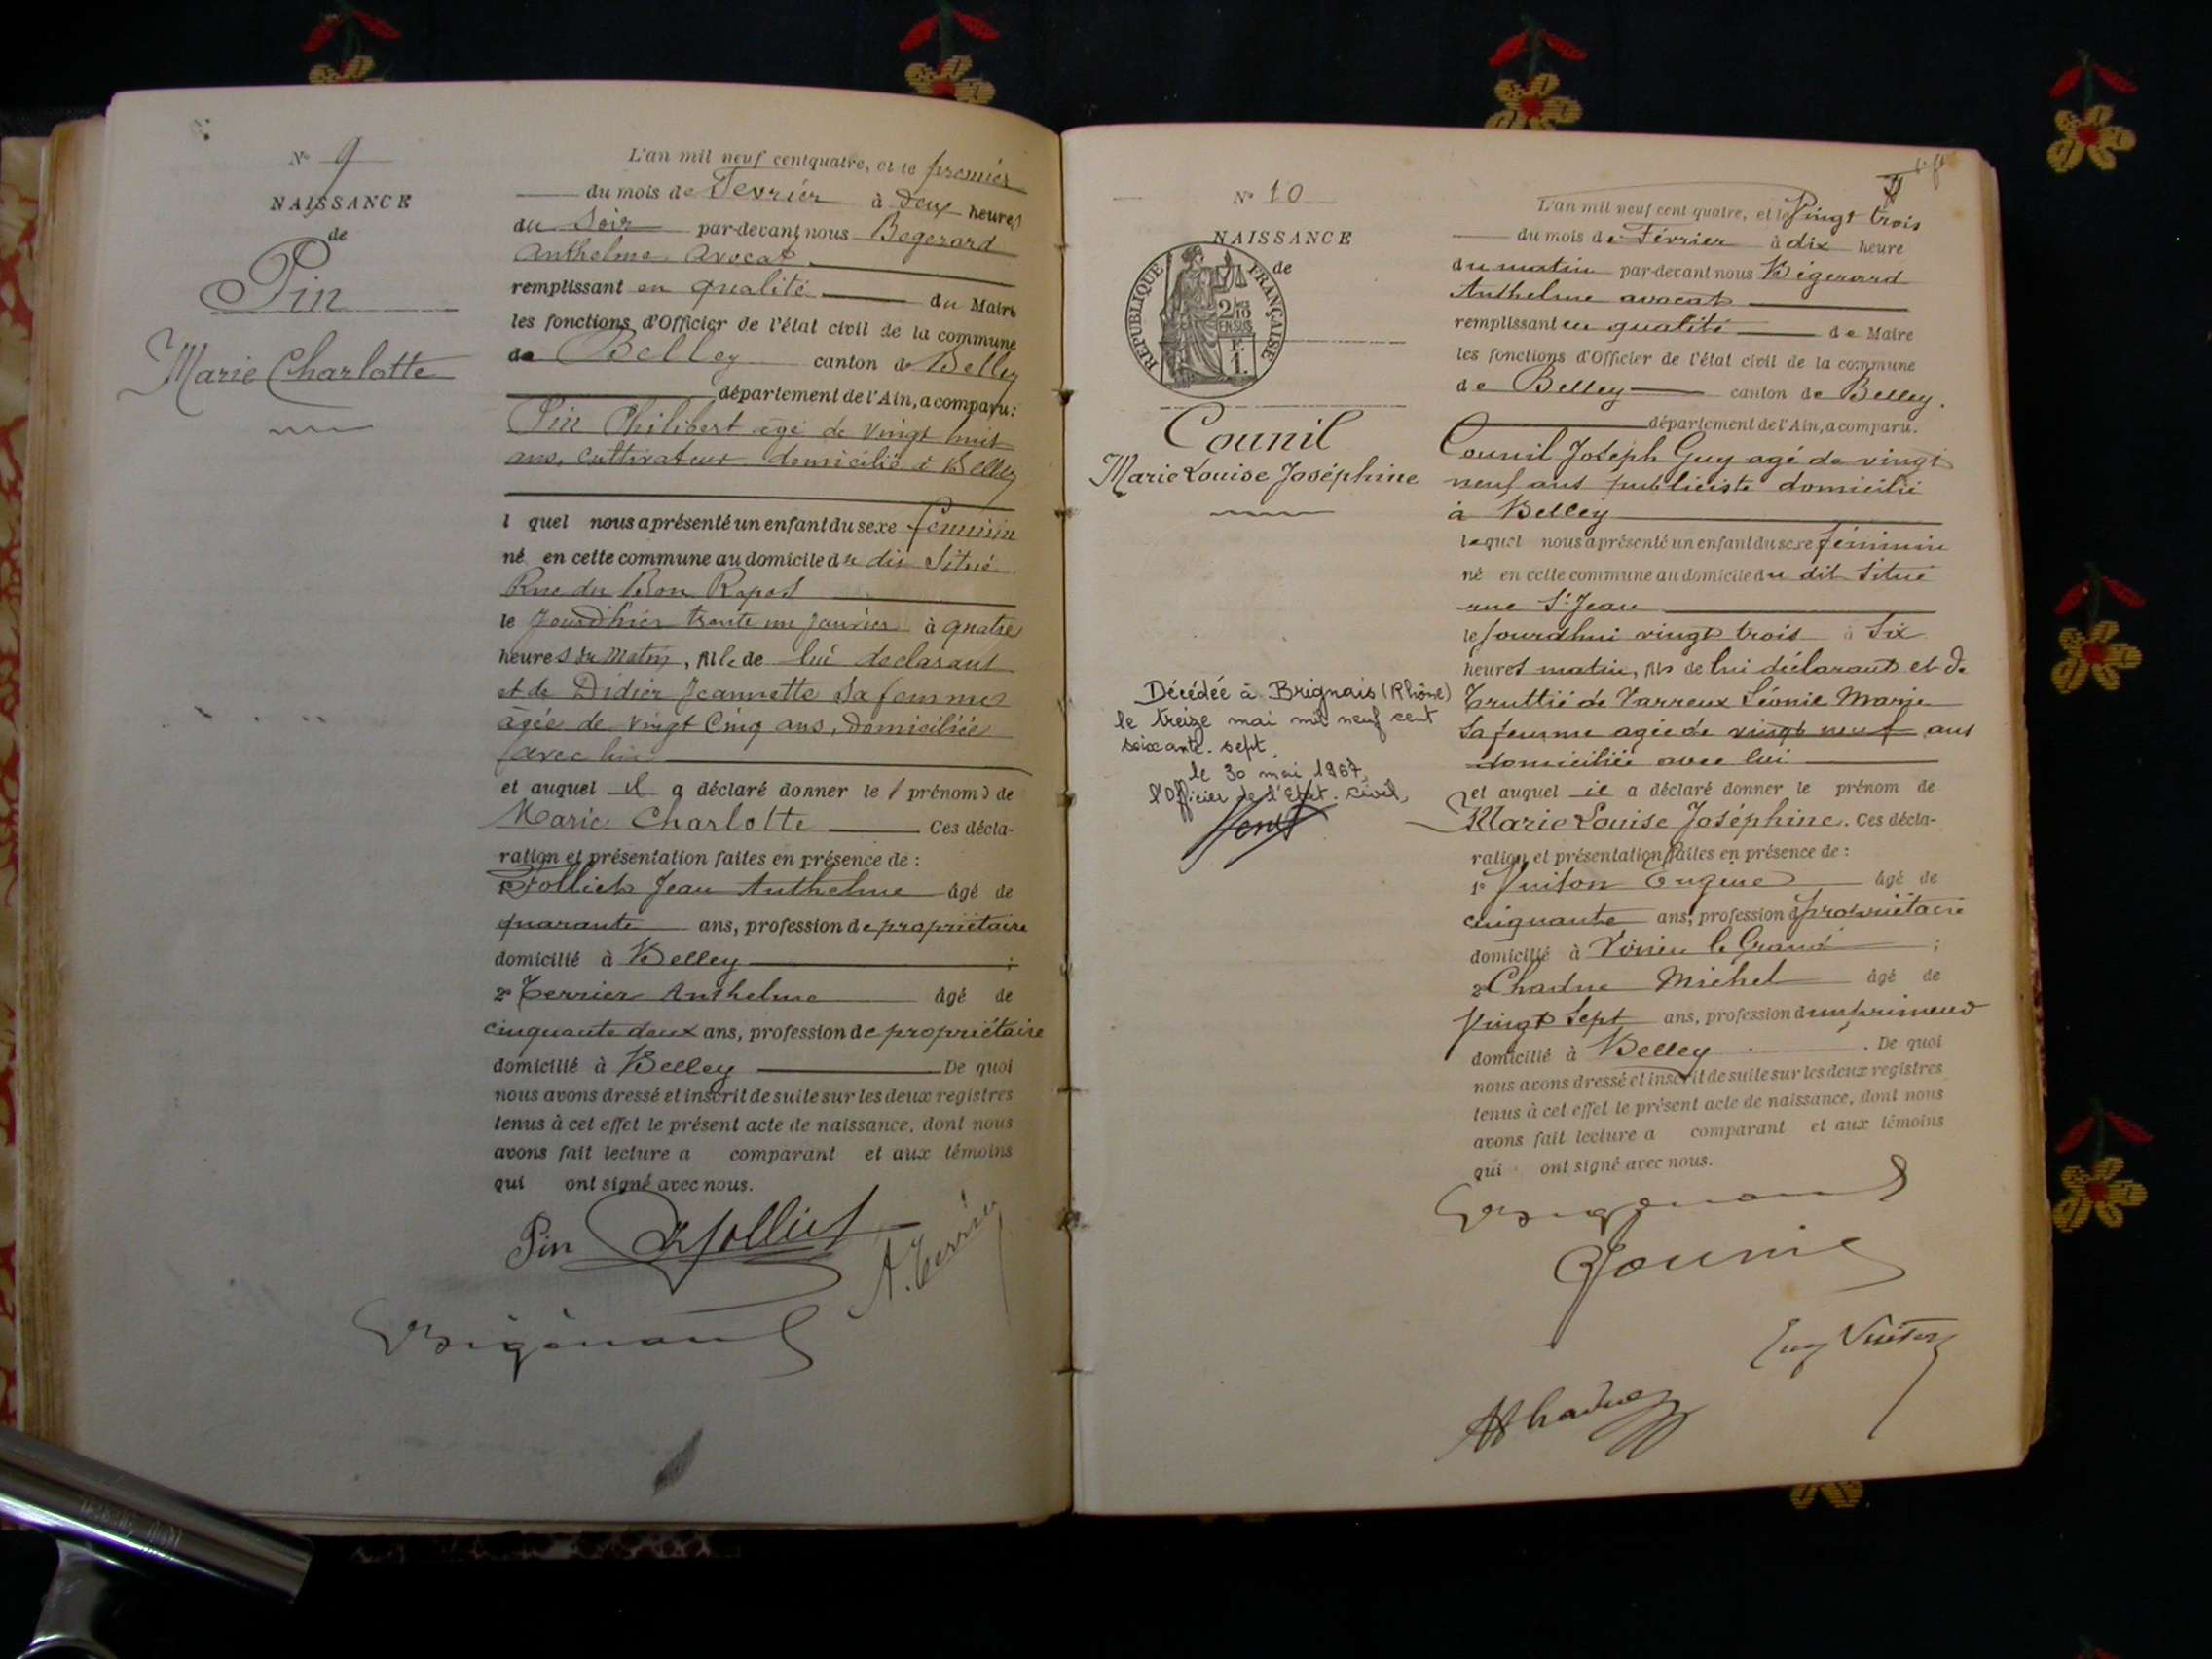 N° 9
NAISSANCE
de
Pin
Marie Charlotte
L'an mil neuf cent quatre, et le premier
du mois de Fevrier à Deux heures
du Soir par-devant nous Bégerard
Anthelme Avocat
remplissant en qualité du Maire
les fonctions d'Officier de l'état civil de la commune
de Belley canton de Belley
département de l'Ain, a comparu:
Pin Philibert agé de vingt huit
ans, cultivateur domicilié à Belley
l quel nous a présenté un enfant du sexe feminin
né en cette commune au domicile du dit Situé
Rue du Bon Repos
le Jourd'hier trente un Janvier à quatre
heures du Matin, fille de lui declarant
et de Didier Jeannette Sa femme
âgée de vingt Cinq ans, domiciliée
avec lui
et auquel il a déclaré donner le prénom de
Marie Charlotte Ces décla-
ration et présentation faites en présence de :
1° Folliet Jean Anthelme âgé de
quarante ans, profession de propriétaire
domicilié à Belley ;
2° Terrier Anthelme âgé de
cinquante deux ans, profession de propriétaire
domicilié à Belley De quoi
nous avons dressé et inscrit de suite sur les deux registres
tenus à cet effet le présent acte de naissance, dont nous
avons fait lecture a comparant et aux témoins
qui ont signé avec nous.
Pin Folliet A. Terrier
Bégerard
N° 10
NAISSANCE
de
RÉPUBLIQUE FRANÇAISE
2/10
EN SUS
F.
1.
Counil
Marie Louise Joséphine
Décédée à Brignais (Rhône)
le treize mai mil neuf cent
soixante-sept.
le 30 mai 1967
l'Officier de l'Etat-Civil,
L'an mil neuf cent quatre, et le Vingt trois
du mois de Février à dix heure
du matin par-devant nous Bégerard
Anthelme avocat
remplissant en qualité de Maire
les fonctions d'Officier de l'état civil de la commune
de Belley canton de Belley.
département de l'Ain, a comparu.
Counil Joseph Guy agé de vingt
neuf ans publiciste domicilié
à Belley
lequel nous a présenté un enfant du sexe féminin
né en cette commune au domicile du dit Situé
rue St Jean
le Jourdhui vingt trois à Six
heures matin, fils de lui déclarant et de
Truttié de Varreux Léonie Marie
Sa femme agée de vingt neuf ans
domiciliée avec lui
et auquel il a déclaré donner le prénom de
Marie Louise Joséphine. Ces décla-
ration et présentation faites en présence de :
1° Vuiton Eugene âgé de
cinquante ans, profession d propriétaire
domicilié à Virieu le Grand ;
2° Chadue Michel âgé de
Vingt Sept ans, profession d imprimeur
domicilié à Belley . De quoi
nous avons dressé et inscrit de suite sur les deux registres
tenus à cet effet le présent acte de naissance, dont nous
avons fait lecture a comparant et aux témoins
qui ont signé avec nous.
Bégerard
Counil
Eug Vuiton
Chadue